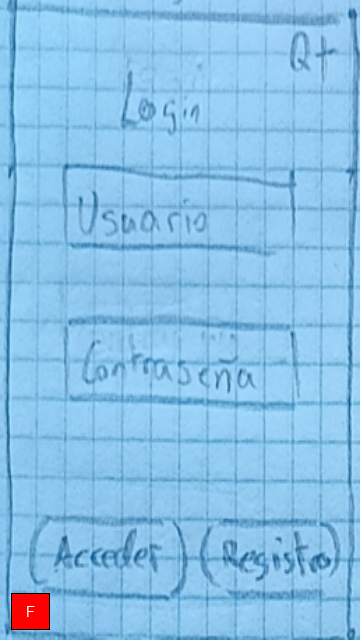 Q+
Login
Usuario
Contraseña
(Acceder) (Registro)
F